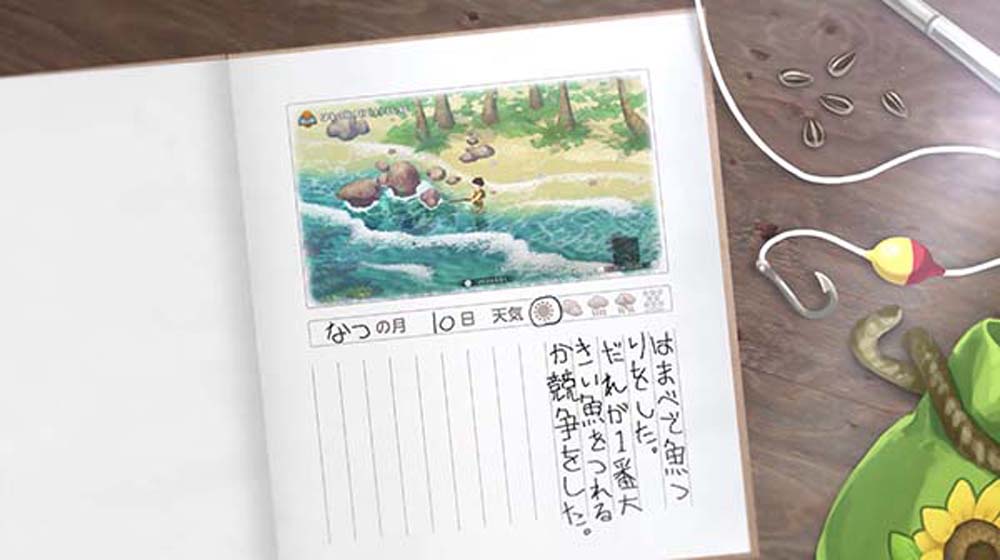 なつの月 10日 天気
はまべで魚つ
りをした。
だれが1番大
きい魚をつれる
か競争をした。